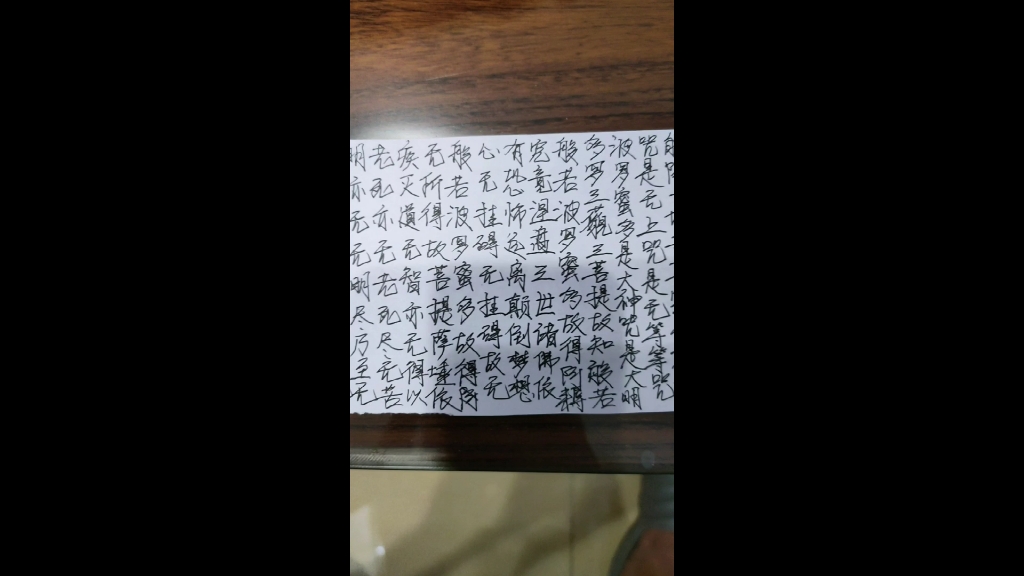 明亦无无明尽乃至无
老死亦无老死尽无苦
疾灭道无智亦无得以
无所得故菩提萨埵依
般若波罗蜜多故得
心无挂碍无挂碍故无
有恐怖远离颠倒梦想
究竟涅盘三世诸佛依
般若波罗蜜多故得阿耨
多罗三藐三菩提故知般若
波罗蜜多是大神咒是大明
咒是无上咒是无等等咒